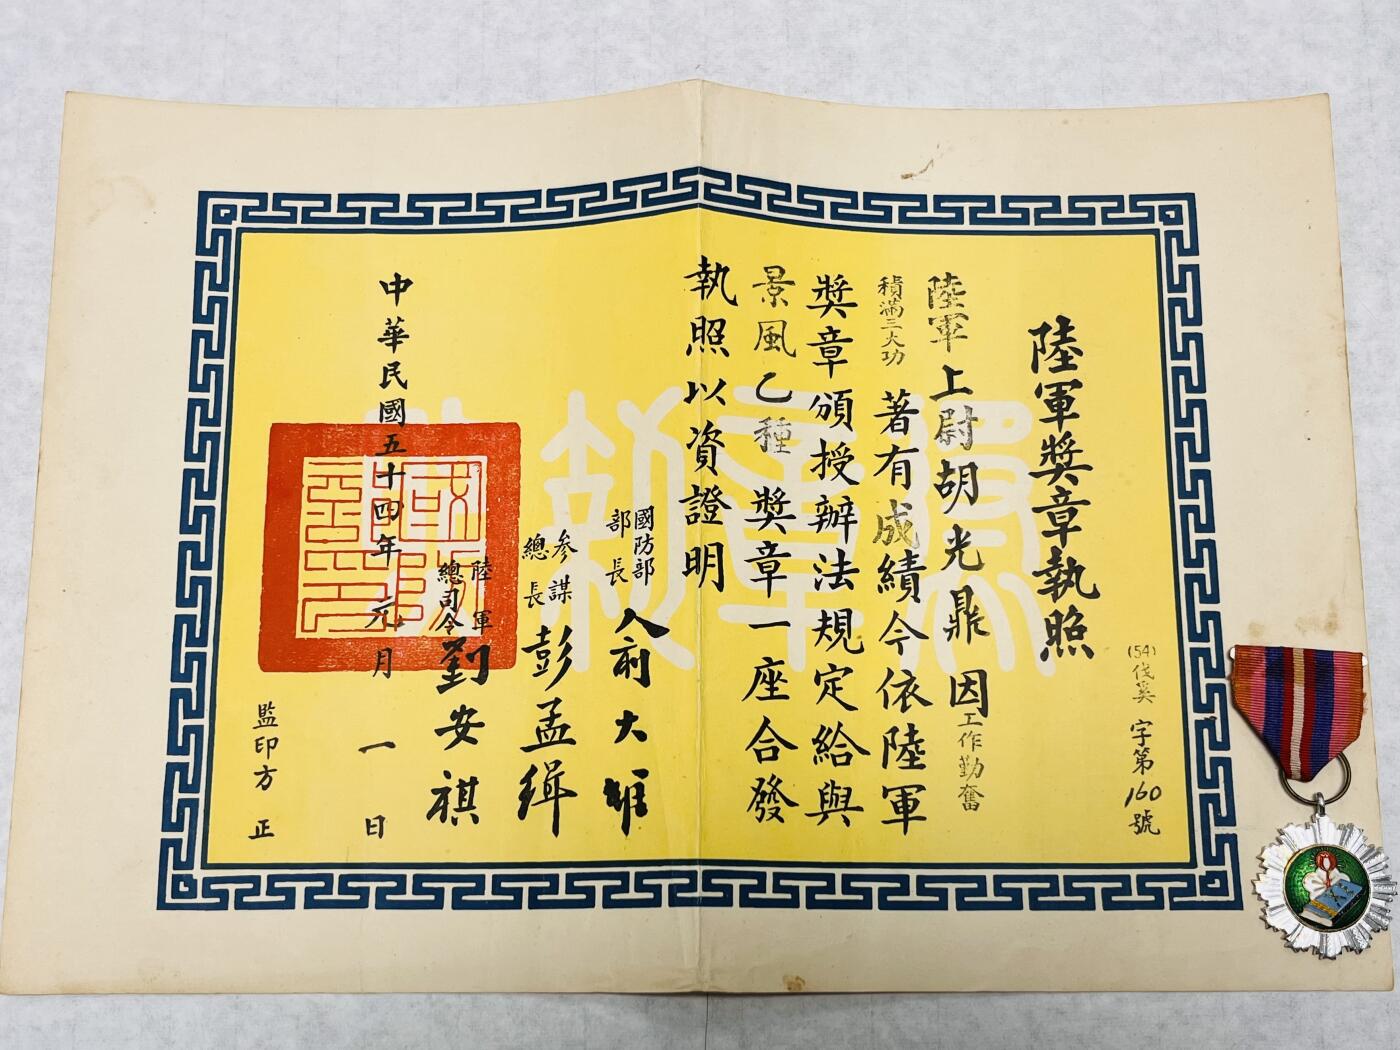 陸軍獎章執照
(54)伐奚字第160號
陸軍上尉胡光鼎因工作勤奮
積滿三大功著有成績今依陸軍
獎章頒授辦法規定給與
景風乙種獎章一座合發
執照以資證明
國防部
部長
俞大維
參謀
總長
彭孟緝
陸軍
總司令
劉安祺
中華民國五十四年元月一日
監印方正